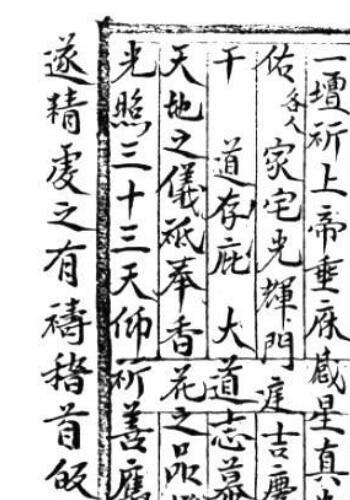 一壇祈上帝垂庥感星真
佑各人家宅光輝門庭吉慶
干　道存庇　大道志慕
天地之儀祗奉香花之品
光照三十三天仰祈善應
遂精虔之有禱稽首皈